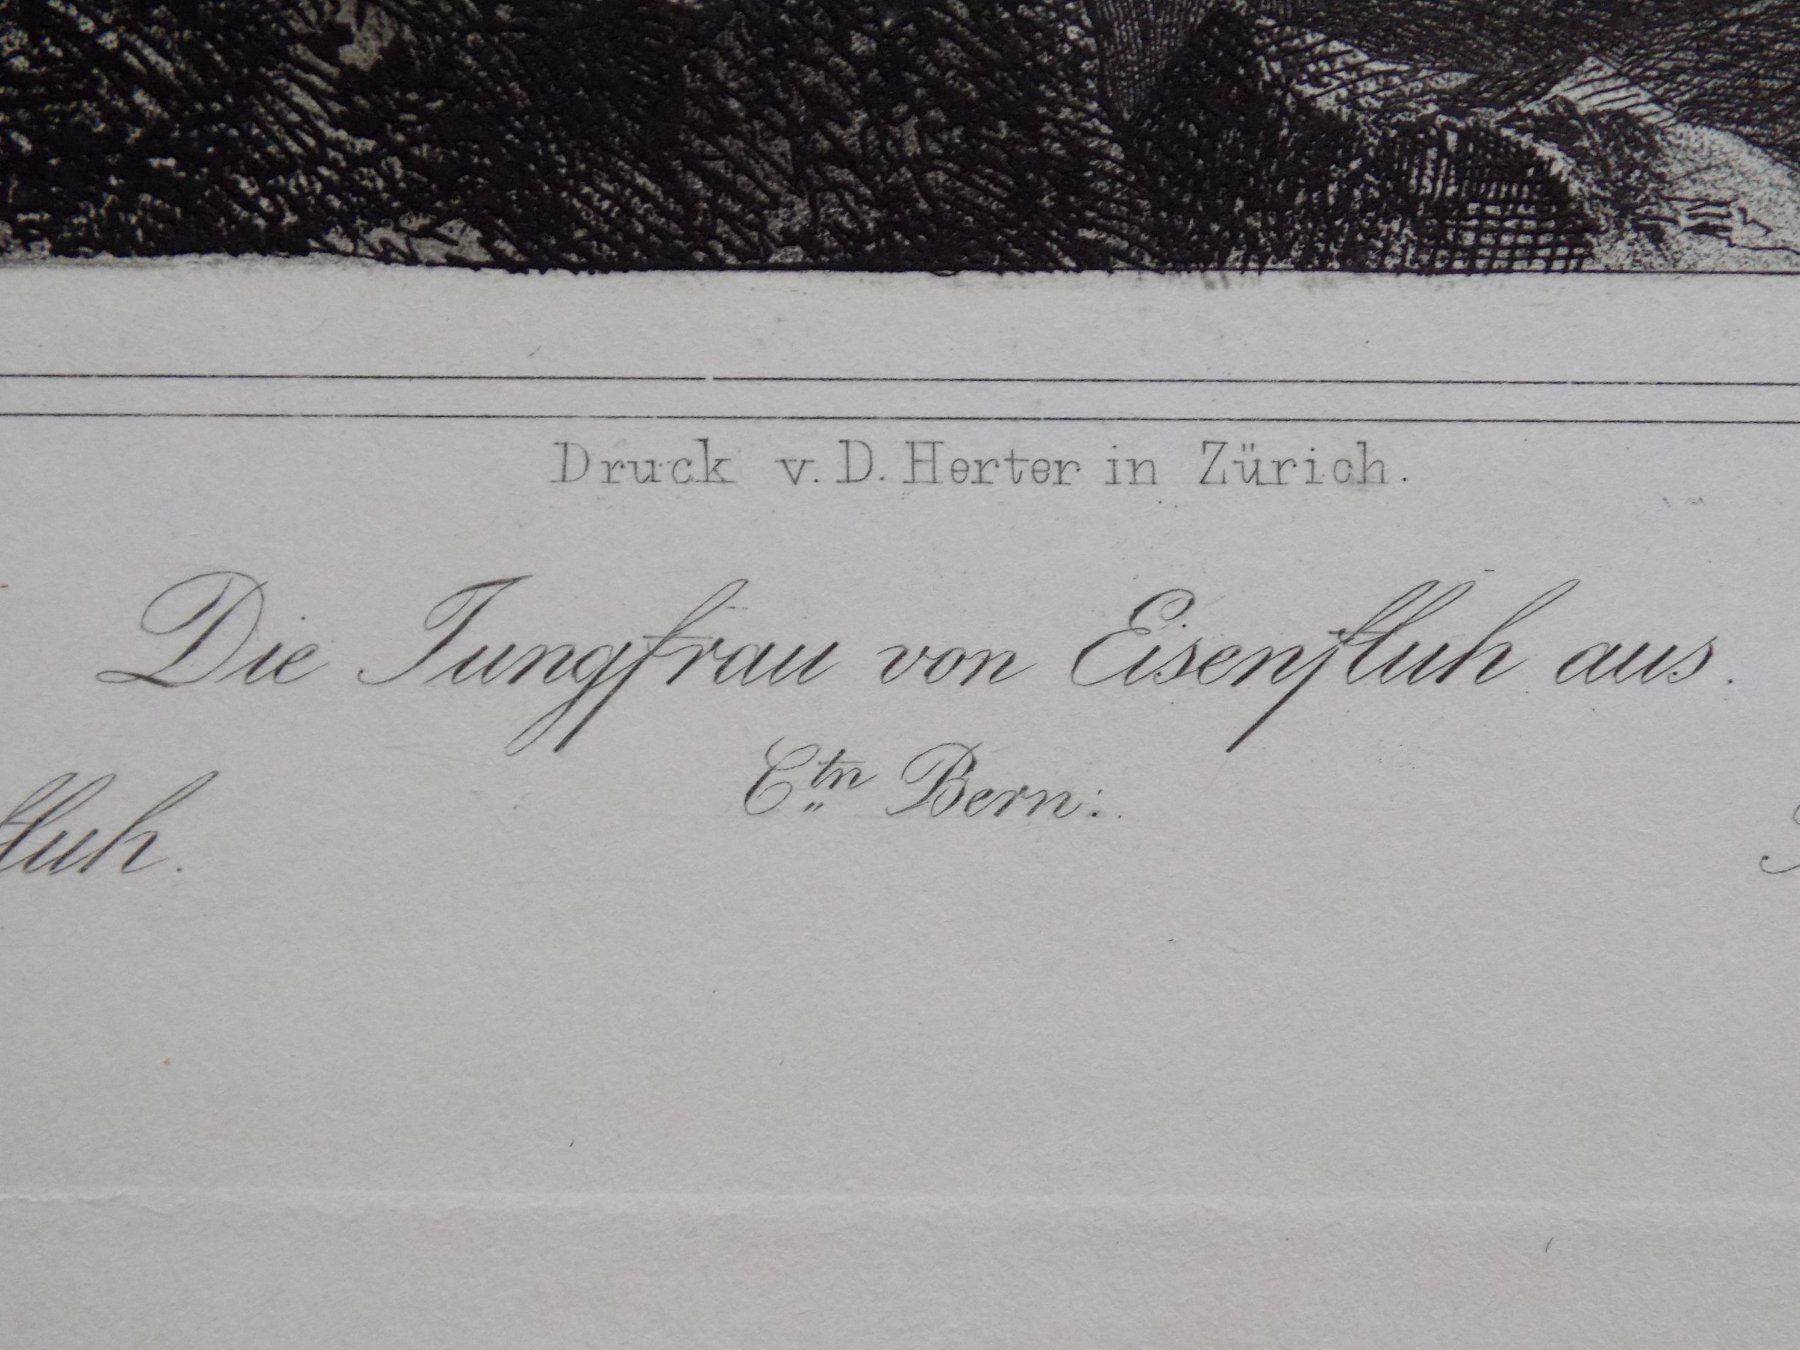 Druck v. D. Herter in Zürich.
Die Jungfrau von Eisenfluh aus.
Ctn Bern: